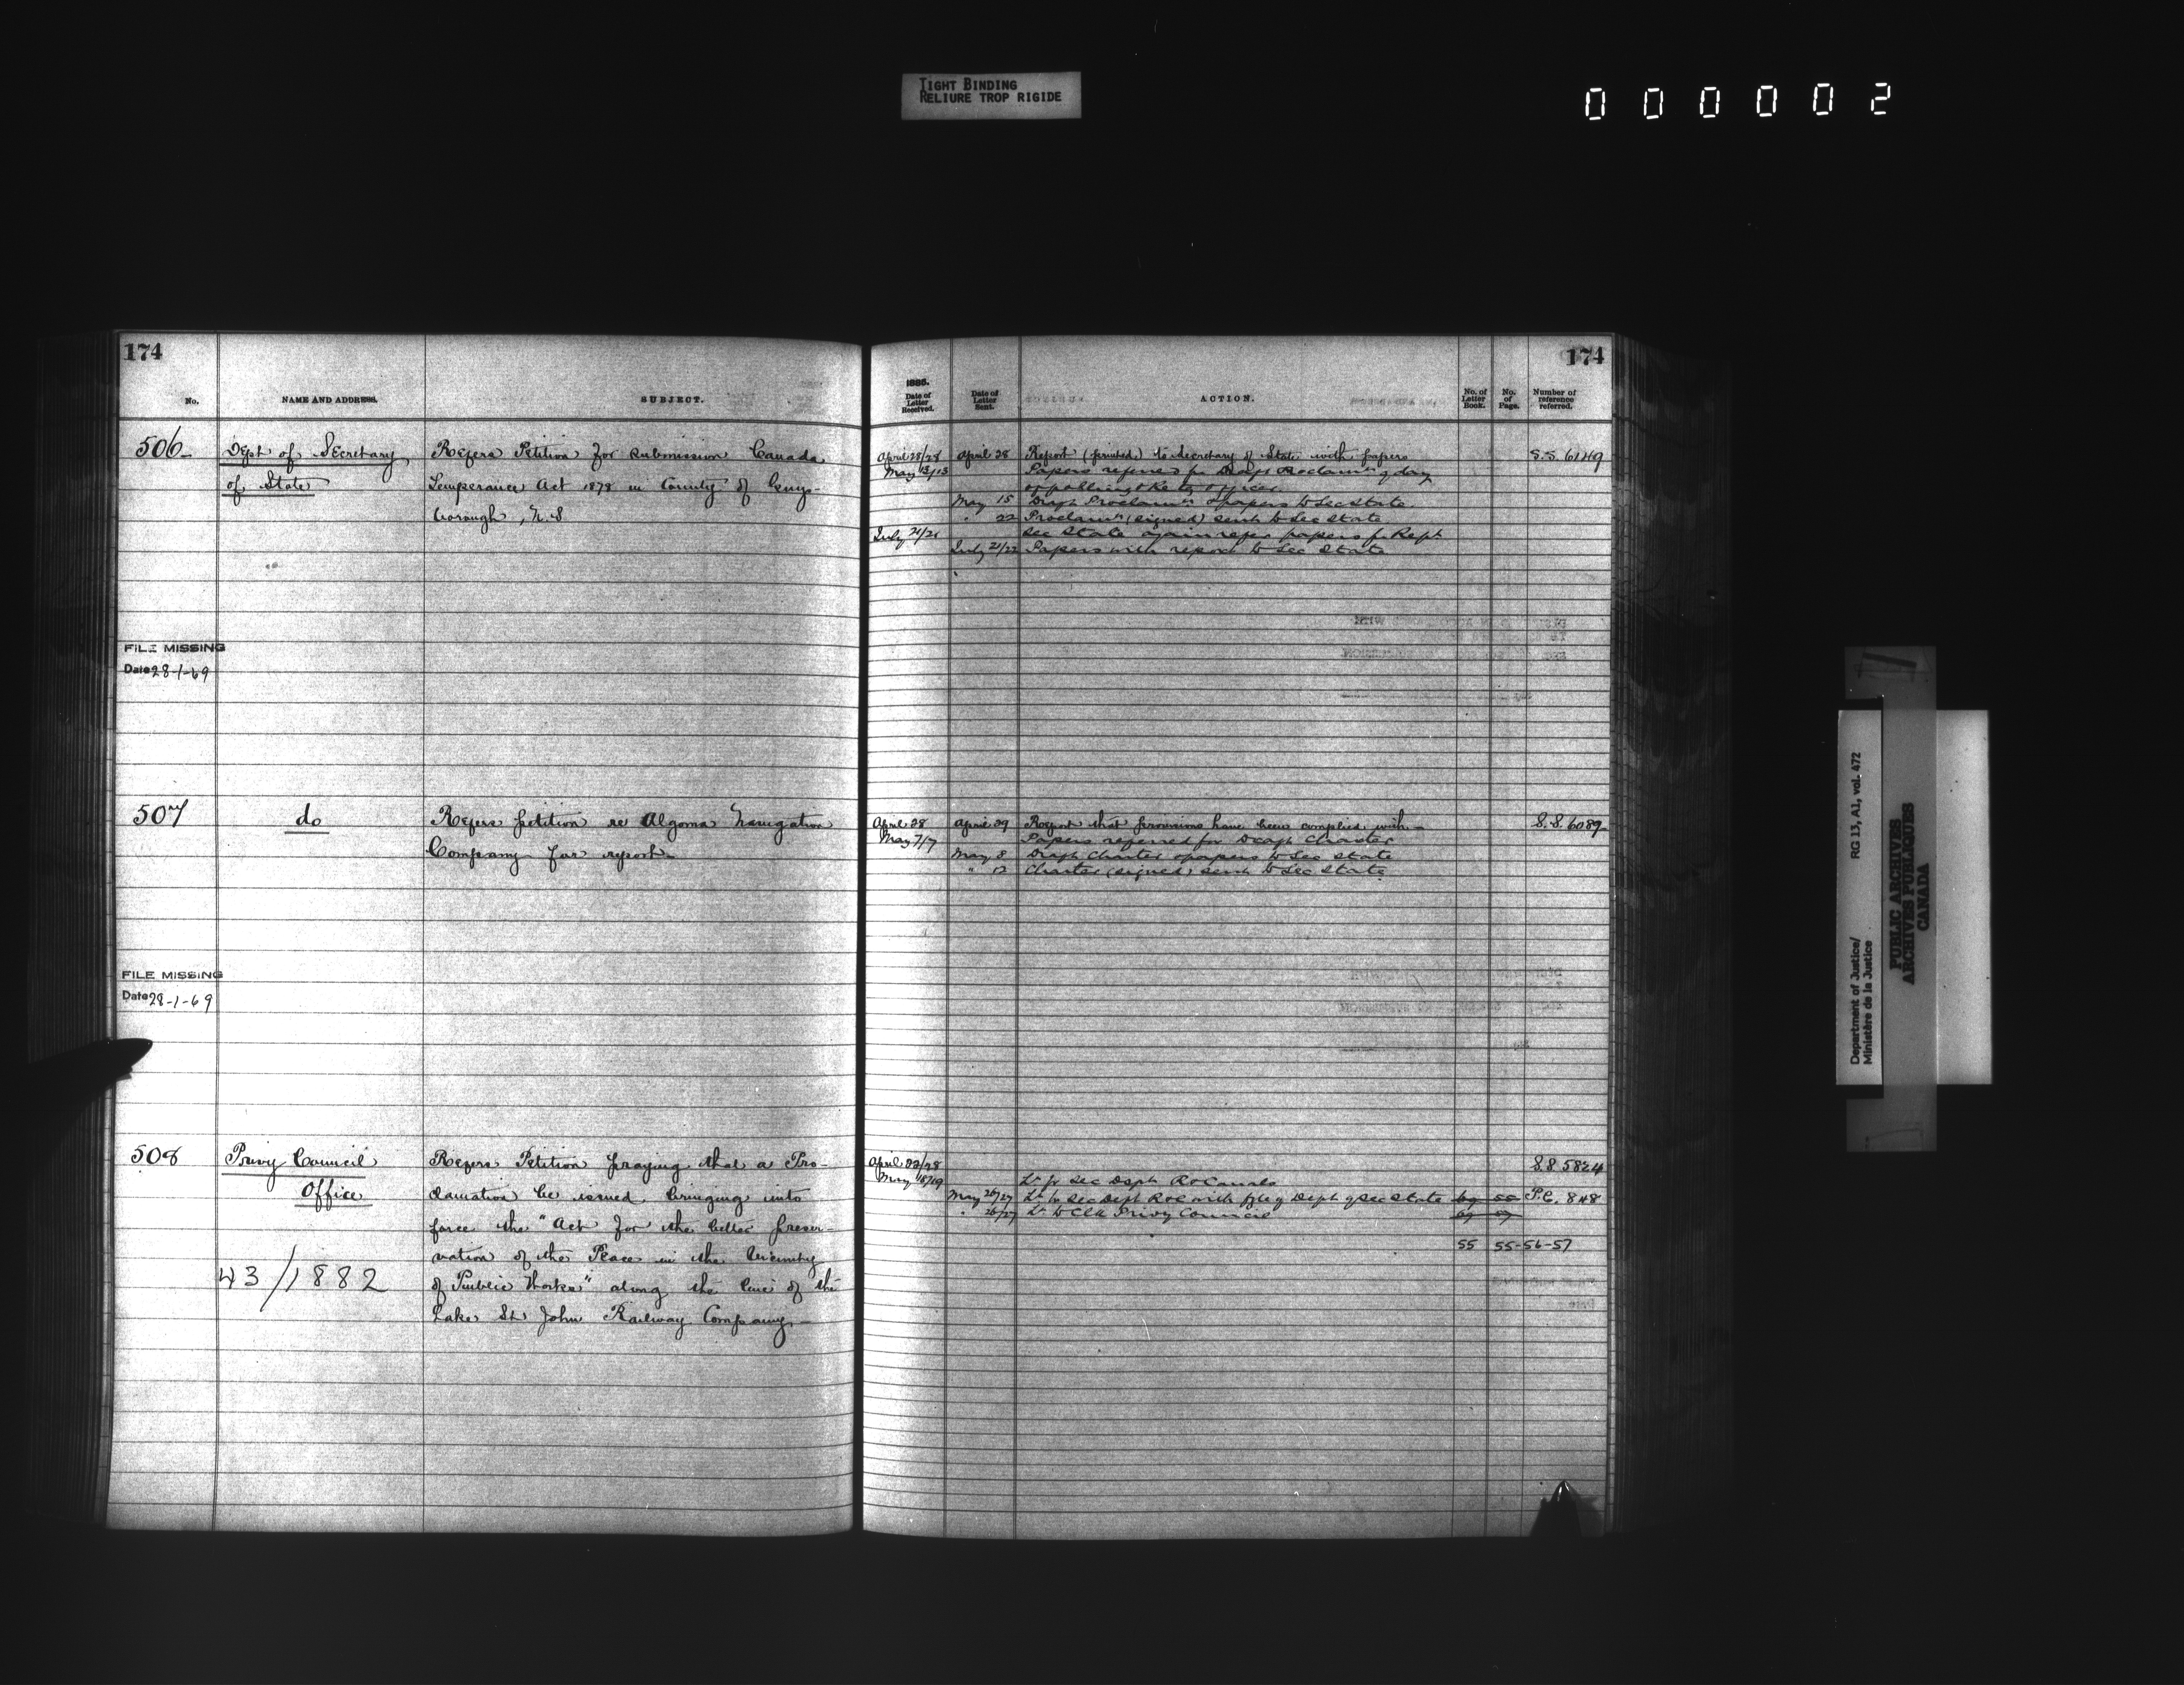 TIGHT BINDING
RELIURE TROP RIGIDE
000002
174
No.
NAME AND ADDRESS.
SUBJECT.
506
Dept of Secretary
of State
Refers Petition for submission Canada
Temperance Act 1878 in County of Guys-
borough, N.S
FILE MISSING
Date 28-1-69
507
do
Refers petition re Algoma Navigation
Company for report
FILE MISSING
Date 28-1-69
508
Privy Council
Office
43/1882
Refers Petition praying that a Pro-
clamation be issued bringing into
force the "Act for the better preser-
vation of the Peace in the vicinity
of Public Works" along the line of the
Lake St John Railway Company
174
1885.
Date of Letter Received.
Date of Letter Sent.
ACTION.
No. of Letter Book.
No. of Page.
Number of reference referred.
April 28/28 April 28 Report (printed) to Secretary of State with papers S.S. 6149
May 13/13 Papers referred for Draft Proclamn. of day
of polling
May 15 Draft Proclamn. & papers to Sec State
" 22 Proclamn. (signed) sent to Sec State
July 21/21 Sec State again refer papers for Rept
July 21/22 Papers with report to Sec State
April 28 April 29 Report that provisions have been complied with S.S. 6089
May 7/7 Papers referred for Draft Charter
May 8 Draft Charter & papers to Sec State
" 12 Charter (signed) sent to Sec State
April 28 S.S 5824
May 18/19 Lr fr Sec Dept R & Canals
May 26/27 Lr to Sec Dept R & C with file of Dept of Sec State P.C. 848
" 26/27 Lr to Clk Privy Council
55 55-56-57
Department of Justice/
Ministère de la Justice
RG 13, A1, vol. 472
PUBLIC ARCHIVES
ARCHIVES PUBLIQUES
CANADA